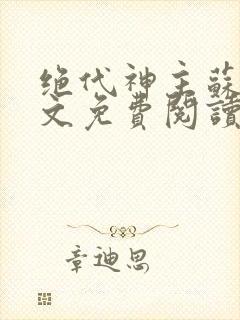 绝代神主蘇
文免費閱讀
章迪思